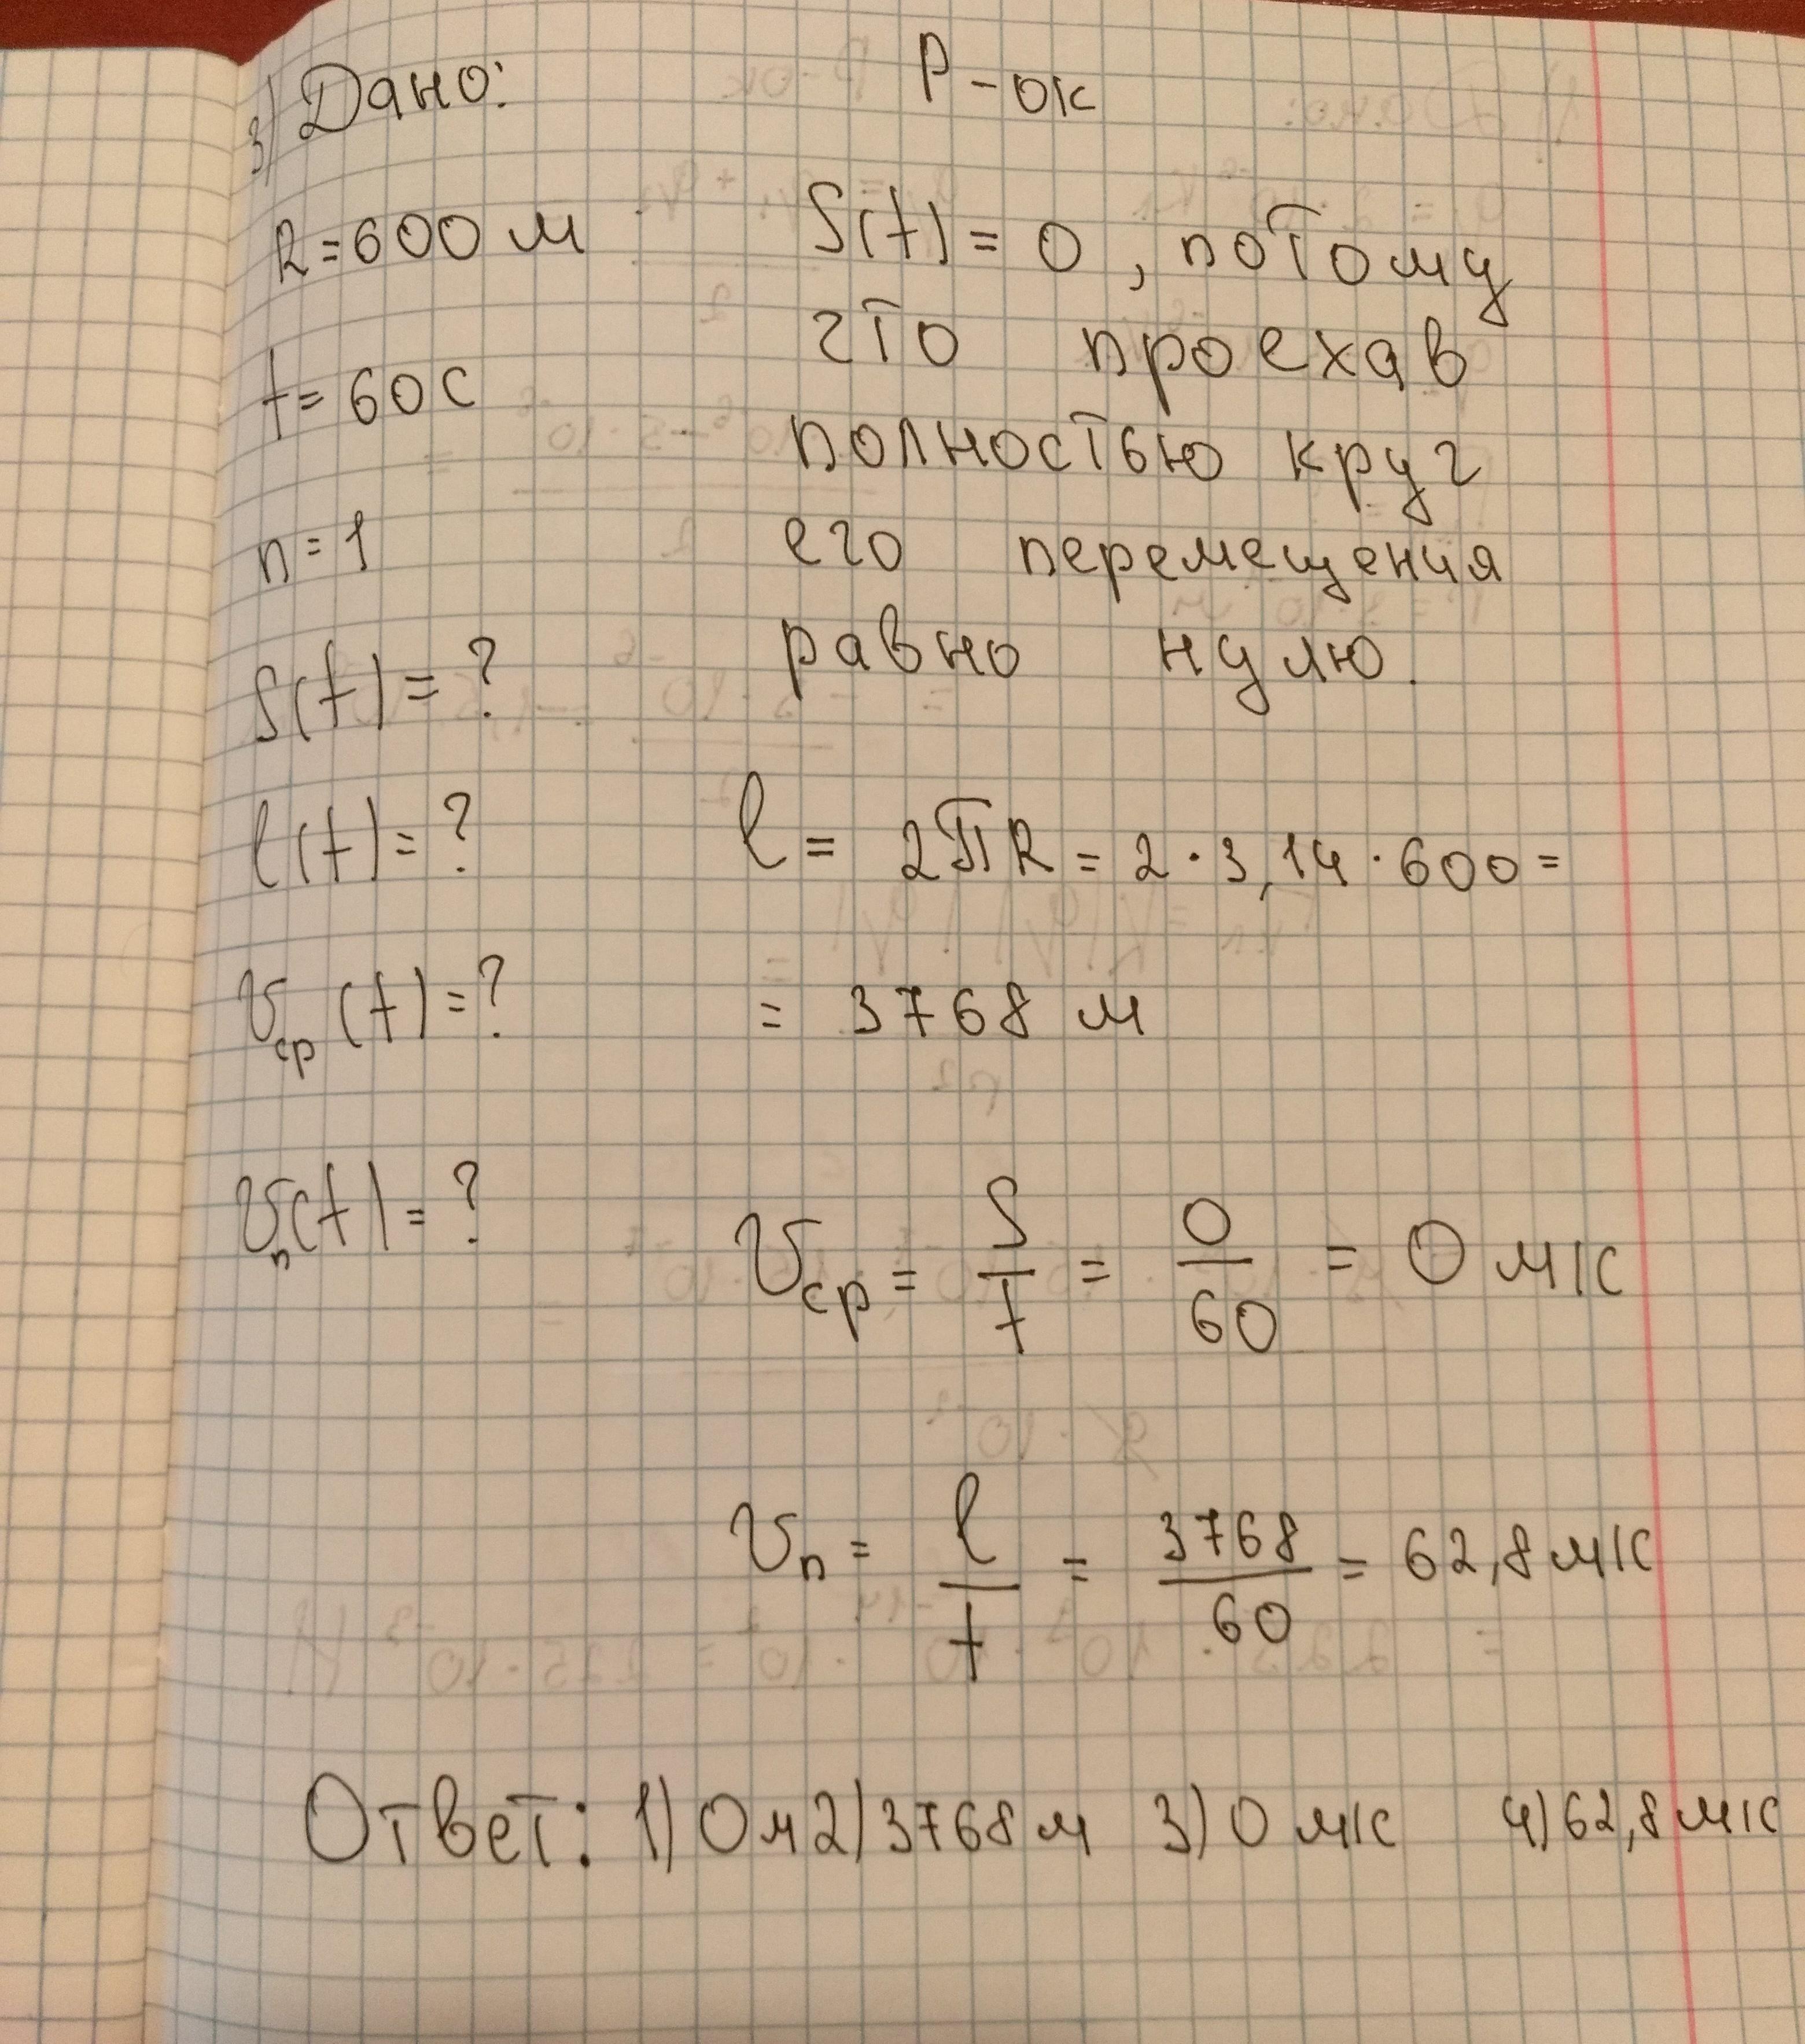 3) Дано:
Р-ок
R = 600 м
t = 60 с
n = 1
S(t) = ?
l(t) = ?
υср (t) = ?
υп(t) = ?
S(t) = 0, потому
что проехав
полностью круг
его перемещения
равно нулю.
l = 2πR = 2 · 3,14 · 600 =
= 3768 м
υср = S/t = 0/60 = 0 м/с
υп = l/t = 3768/60 = 62,8 м/с
Ответ: 1) 0 м 2) 3768 м 3) 0 м/с 4) 62,8 м/с